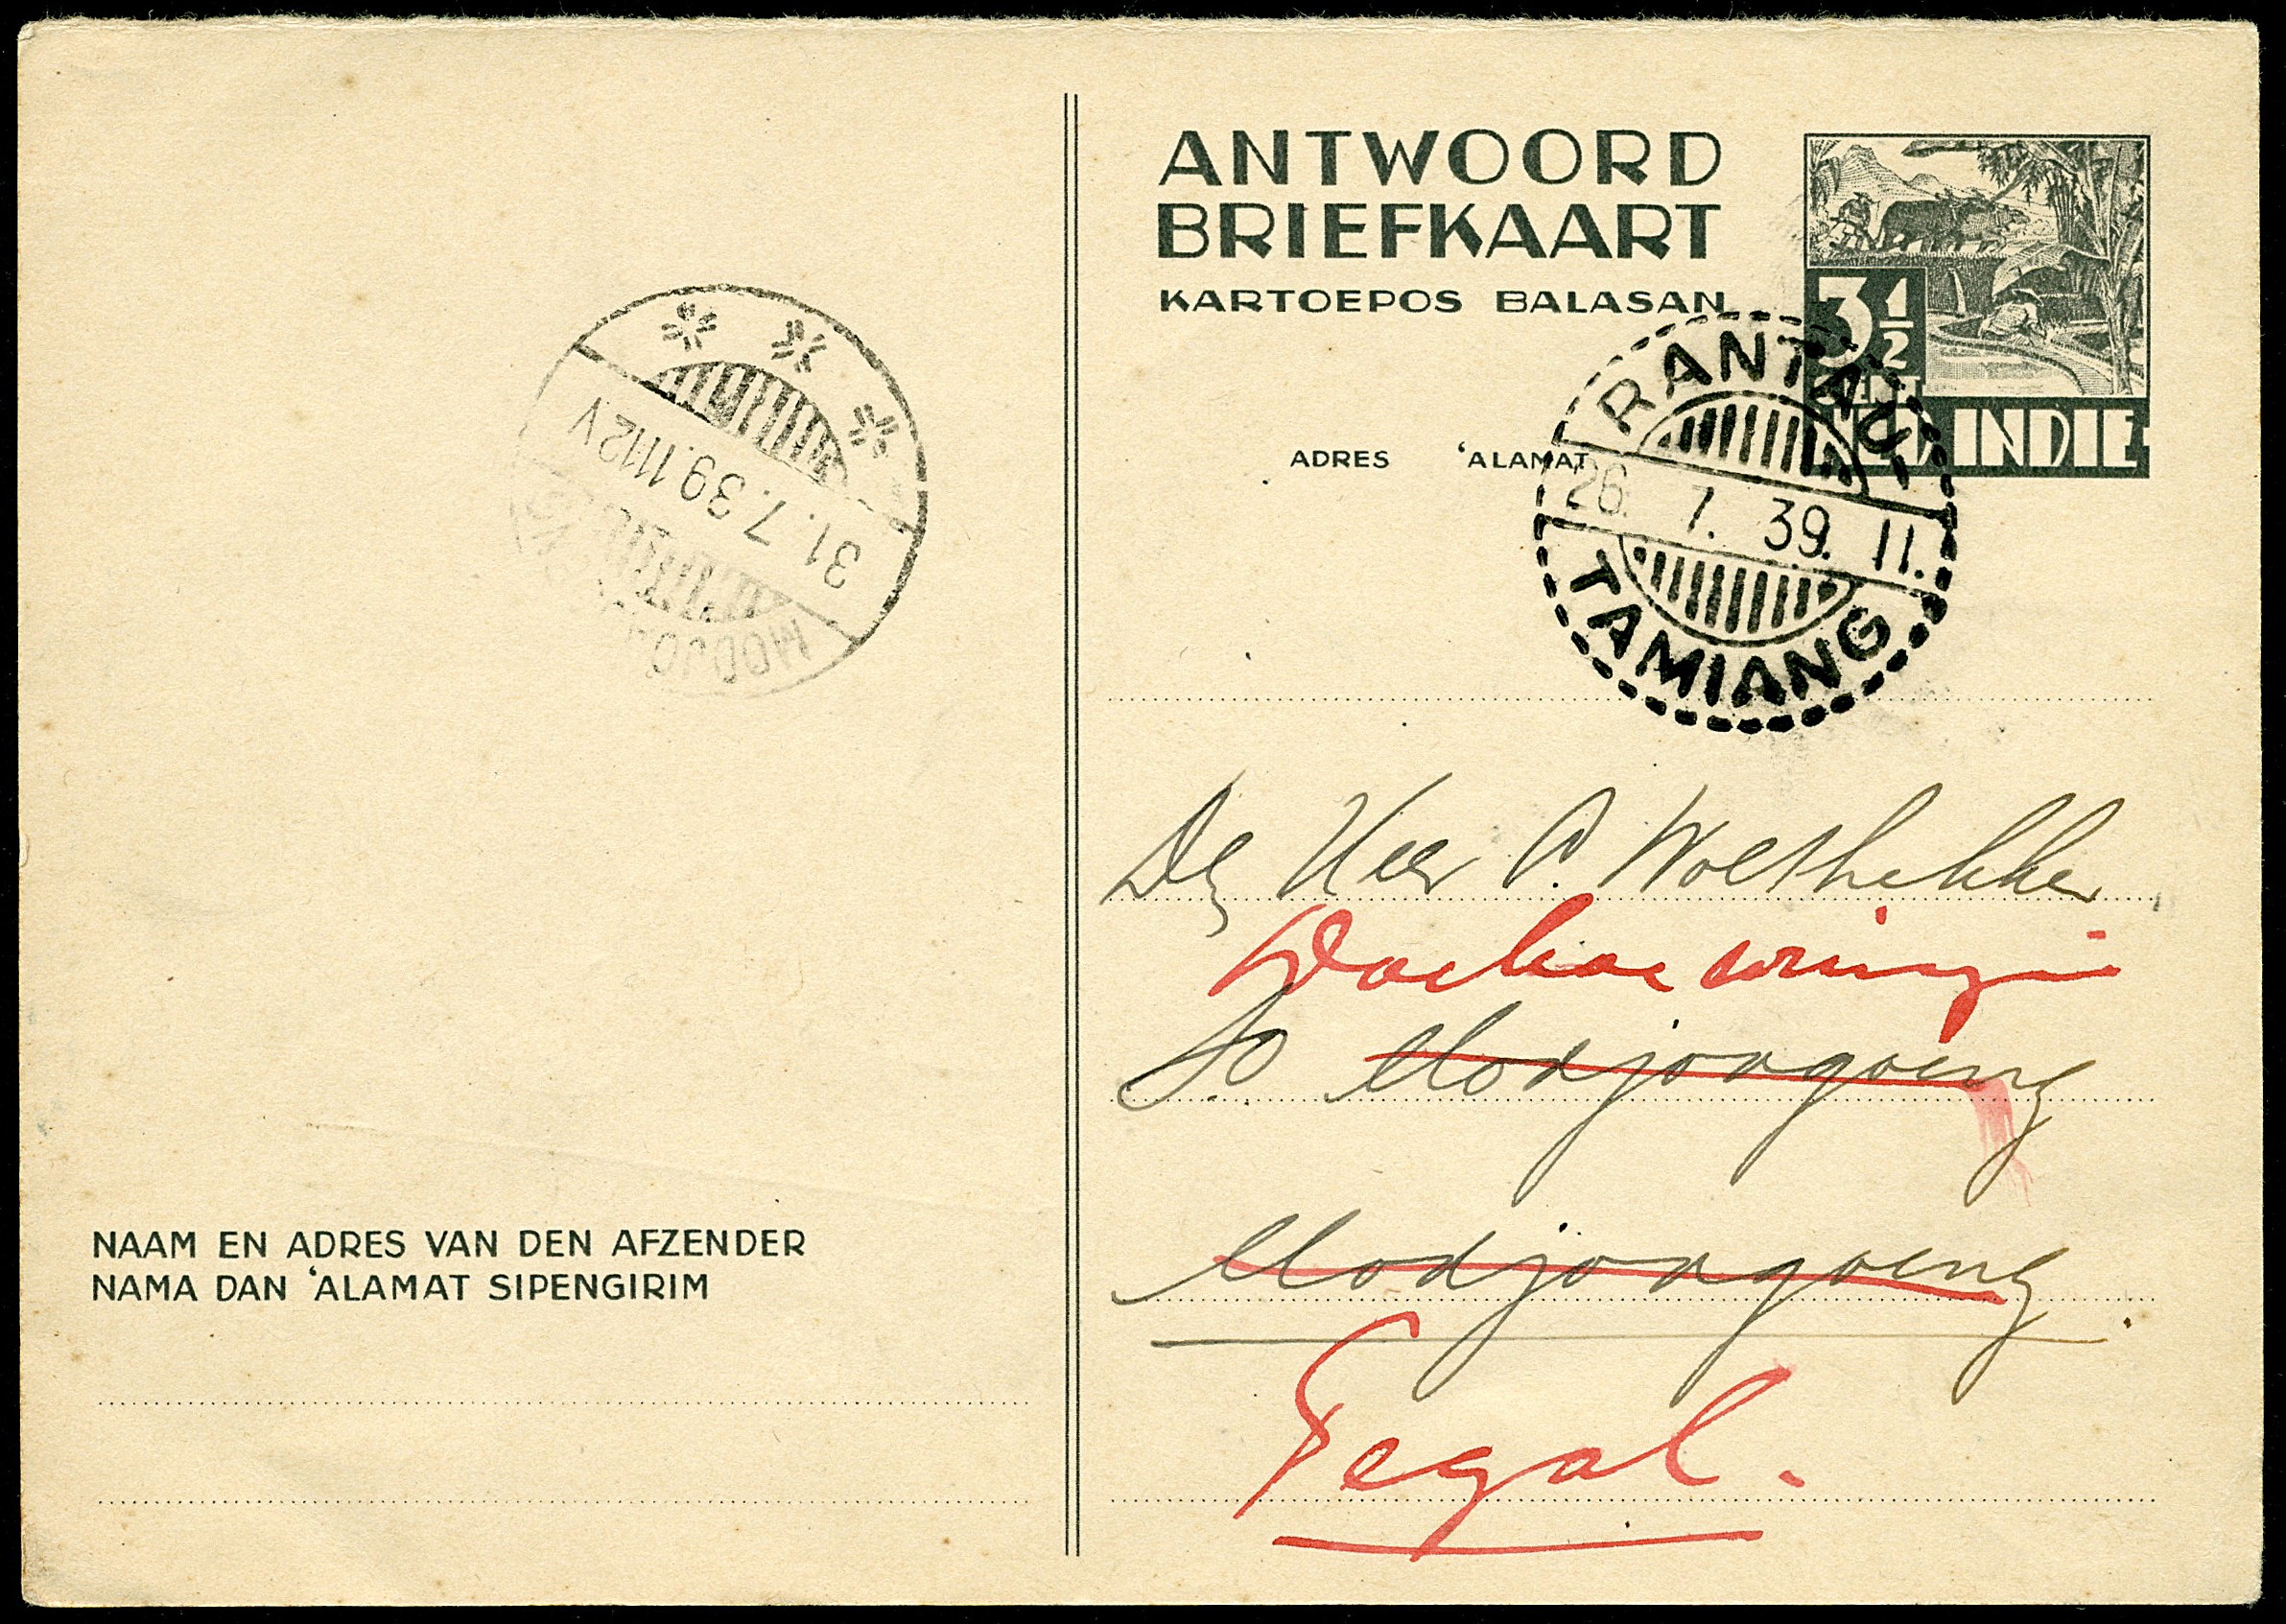 ANTWOORD
BRIEFKAART
KARTOEPOS BALASAN
3½
CENT
NED. INDIE
ADRES 'ALAMAT
RANTAU-
26. 7. 39. 11.
TAMIANG
31. 7. 39. 1112 V
MODJO
Heer P. Wolthekker
Doekoewringin
So Modjoagoeng
Modjoagoeng
Tegal.
NAAM EN ADRES VAN DEN AFZENDER
NAMA DAN 'ALAMAT SIPENGIRIM